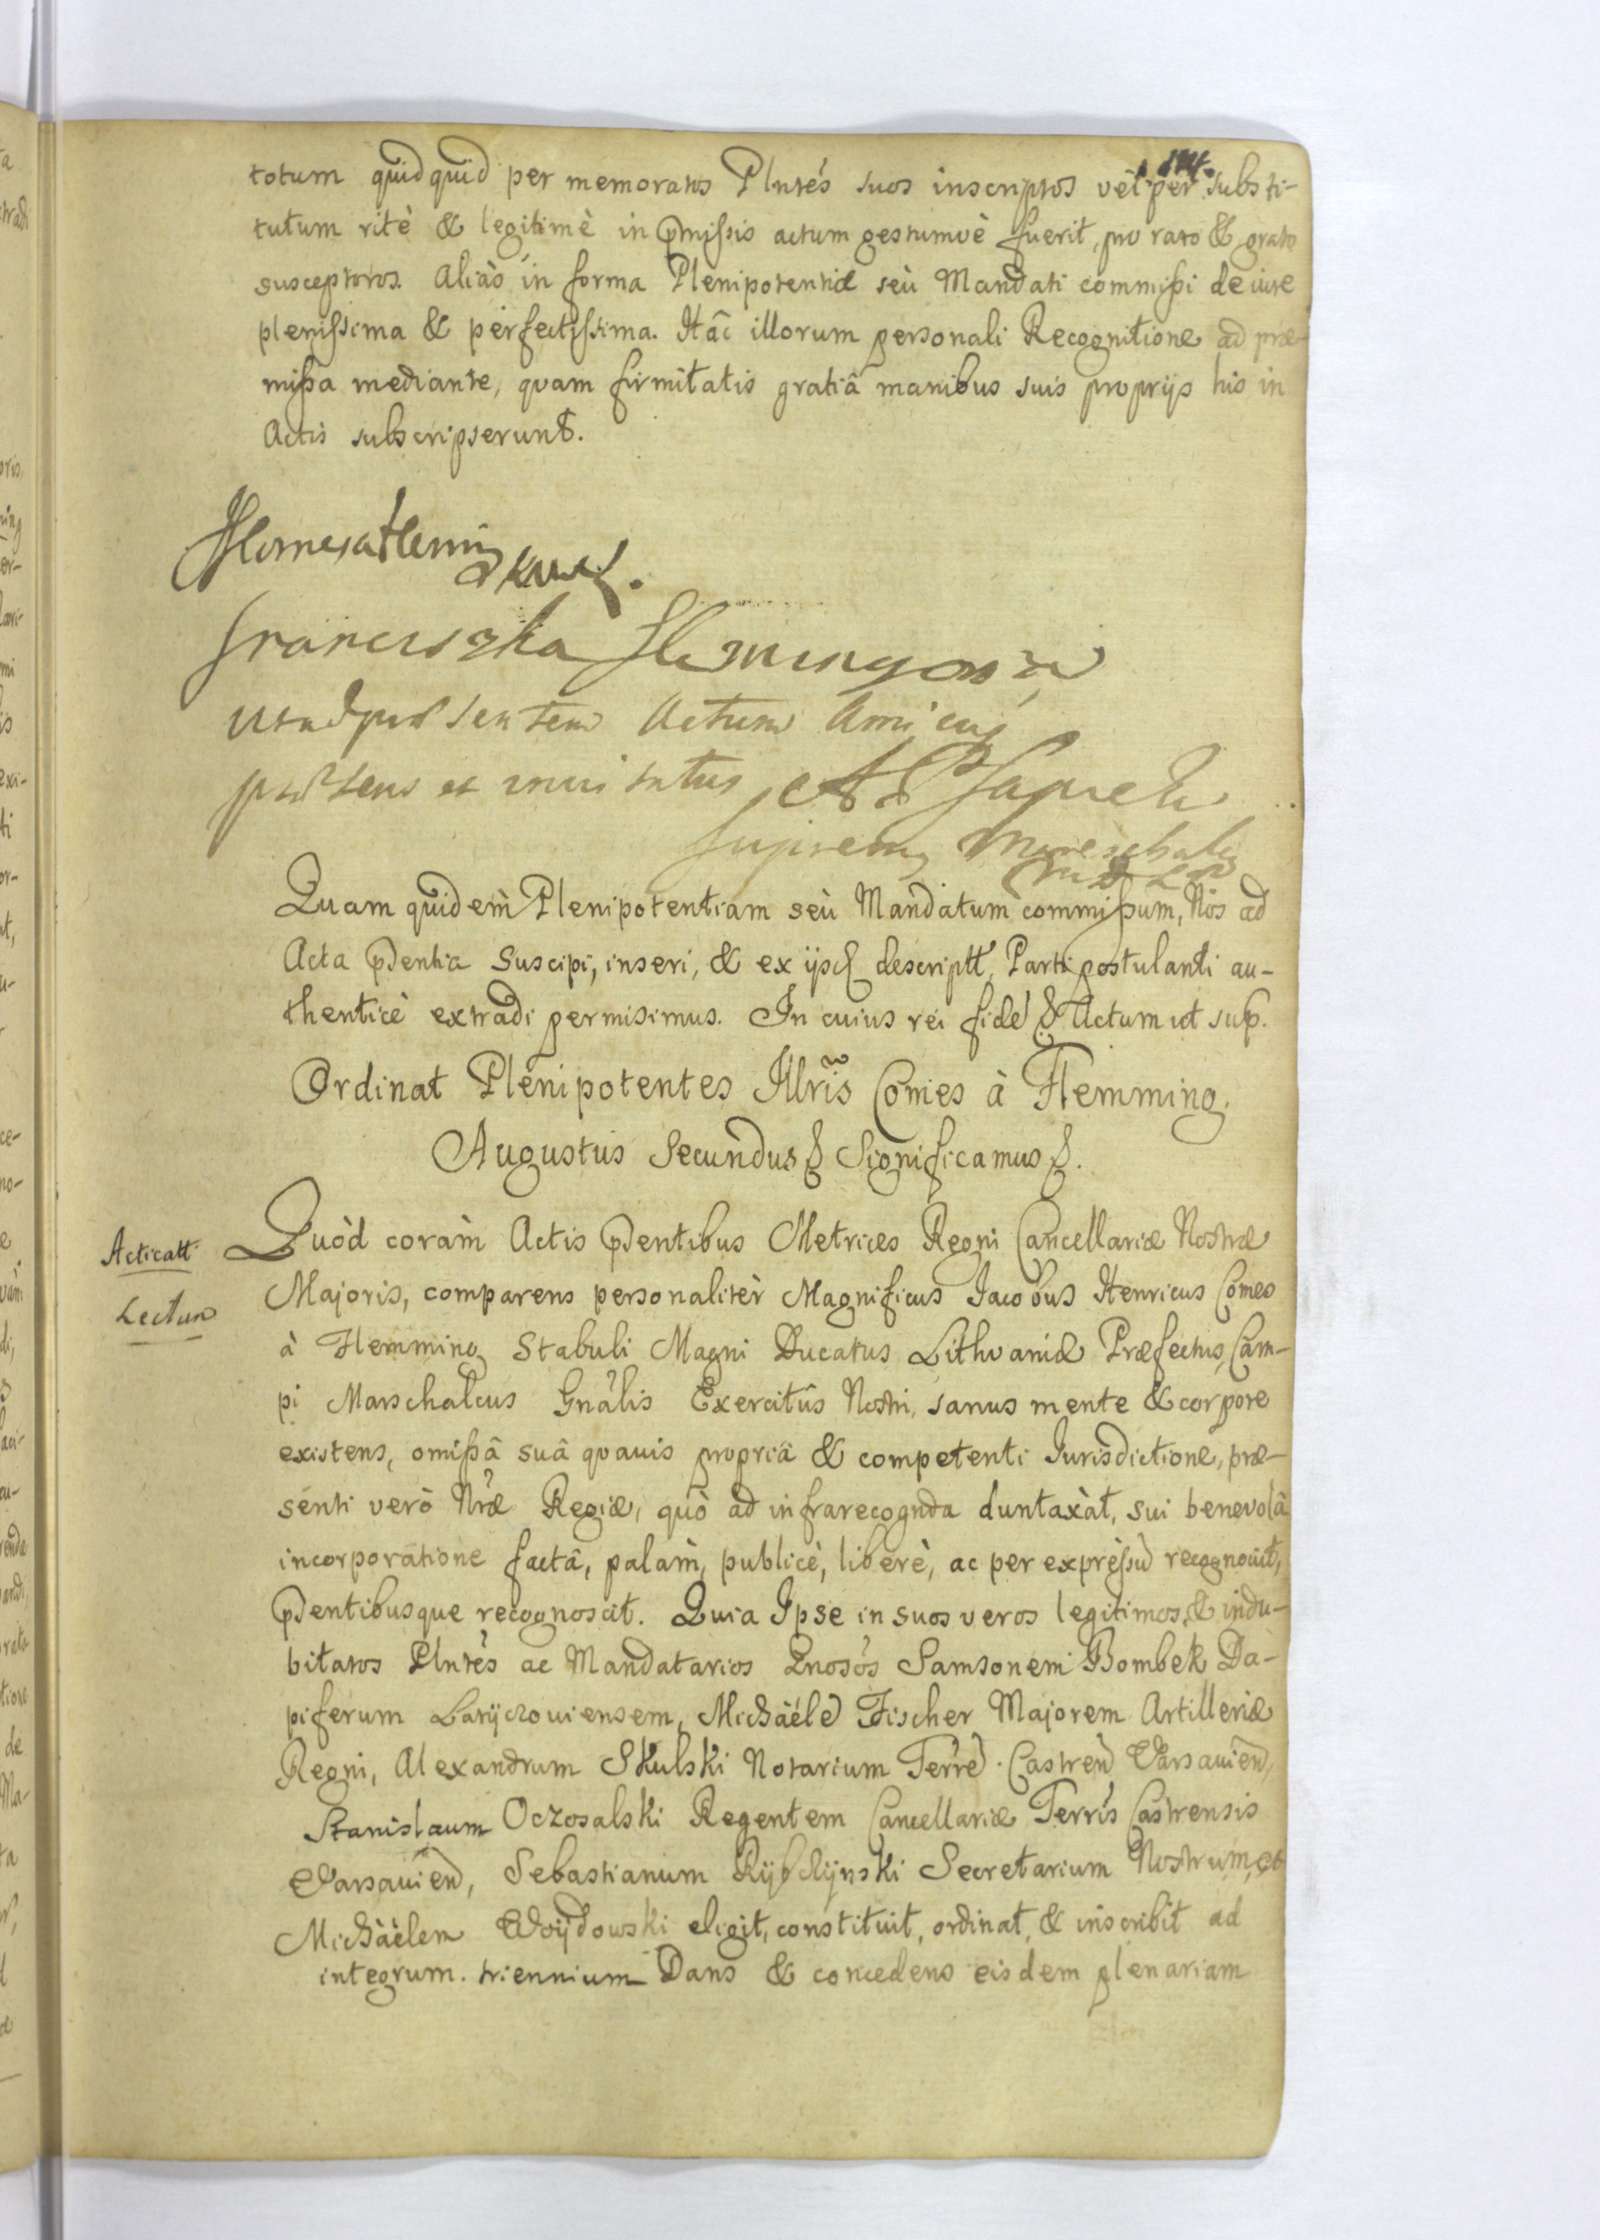 114.
totum quidquid per memoratos Plntês suos inscriptos vel per substi-
tutum ritè & legitimè in pmissis actum gestumvè fuerit, pro rato & grato
suscepturos. Aliàs in forma Plenipotentiæ seù Mandati commissi de iure
plenissima & perfectissima. Hâc illorum personali Recognitione ad præ-
missa mediante, quam firmitatis gratiâ manibus suis proprijs his in
Actis subscripserunt.
Franciszka Flemingowa
ut ad præsentem Actum Amicus
præsens et invitatus A P Sapieha
Supremus Mareschalcus
M D L
Quam quidem Plenipotentiam seù Mandatum commissum, Nos ad
Acta pdentia Suscipi, inseri, & ex ijsd descriptt, Parti postulanti au-
thenticè extradi permisimus. In cuius rei fidé & Actum ut sup.
Ordinat Plenipotentes Illris Comes à Flemming.
Augustus Secundus & Significamus &.
Acticatt
Lectum
Quòd coràm Actis pdentibus Metrices Regni Cancellariæ Nostræ
Majoris, comparens personalitèr Magnificus Jacobus Henricus Comes
à Flemming Stabuli Magni Ducatus Lithvaniæ Præfectus, Cam-
pi Marschalcus Gnâlis Exercitûs Nostri, sanus mente & corpore
existens, omissâ suâ quavis propriâ & competenti Jurisdictione, præ-
senti verò Nræ Regiæ, quò ad infrarecognda duntaxàt, sui benevolâ
incorporatione factâ, palàm, publicè, liberè, ac per expressù recognovit,
pdentibusque recognoscit. Quia Ipse in suos veros legitimos, & indu-
bitatos Plntès ac Mandatarios Gnosôs Samsonem Bombek Da-
piferum Latyczoviensem, Michäéle Fischer Majorem Artilleriæ
Regni, Alexandrum Skulski Notarium Terre Castren Varsavien,
Stanislaum Oczosalski Regentem Cancellariæ Terris Castrensis
Varsavien, Sebastianum Rybczynski Secretarium Nostrum, et
Michäèlem Woÿdowski eligit, constituit, ordinat, & inscribit ad
integrum triennium Dans & concedens eisdem plenariam